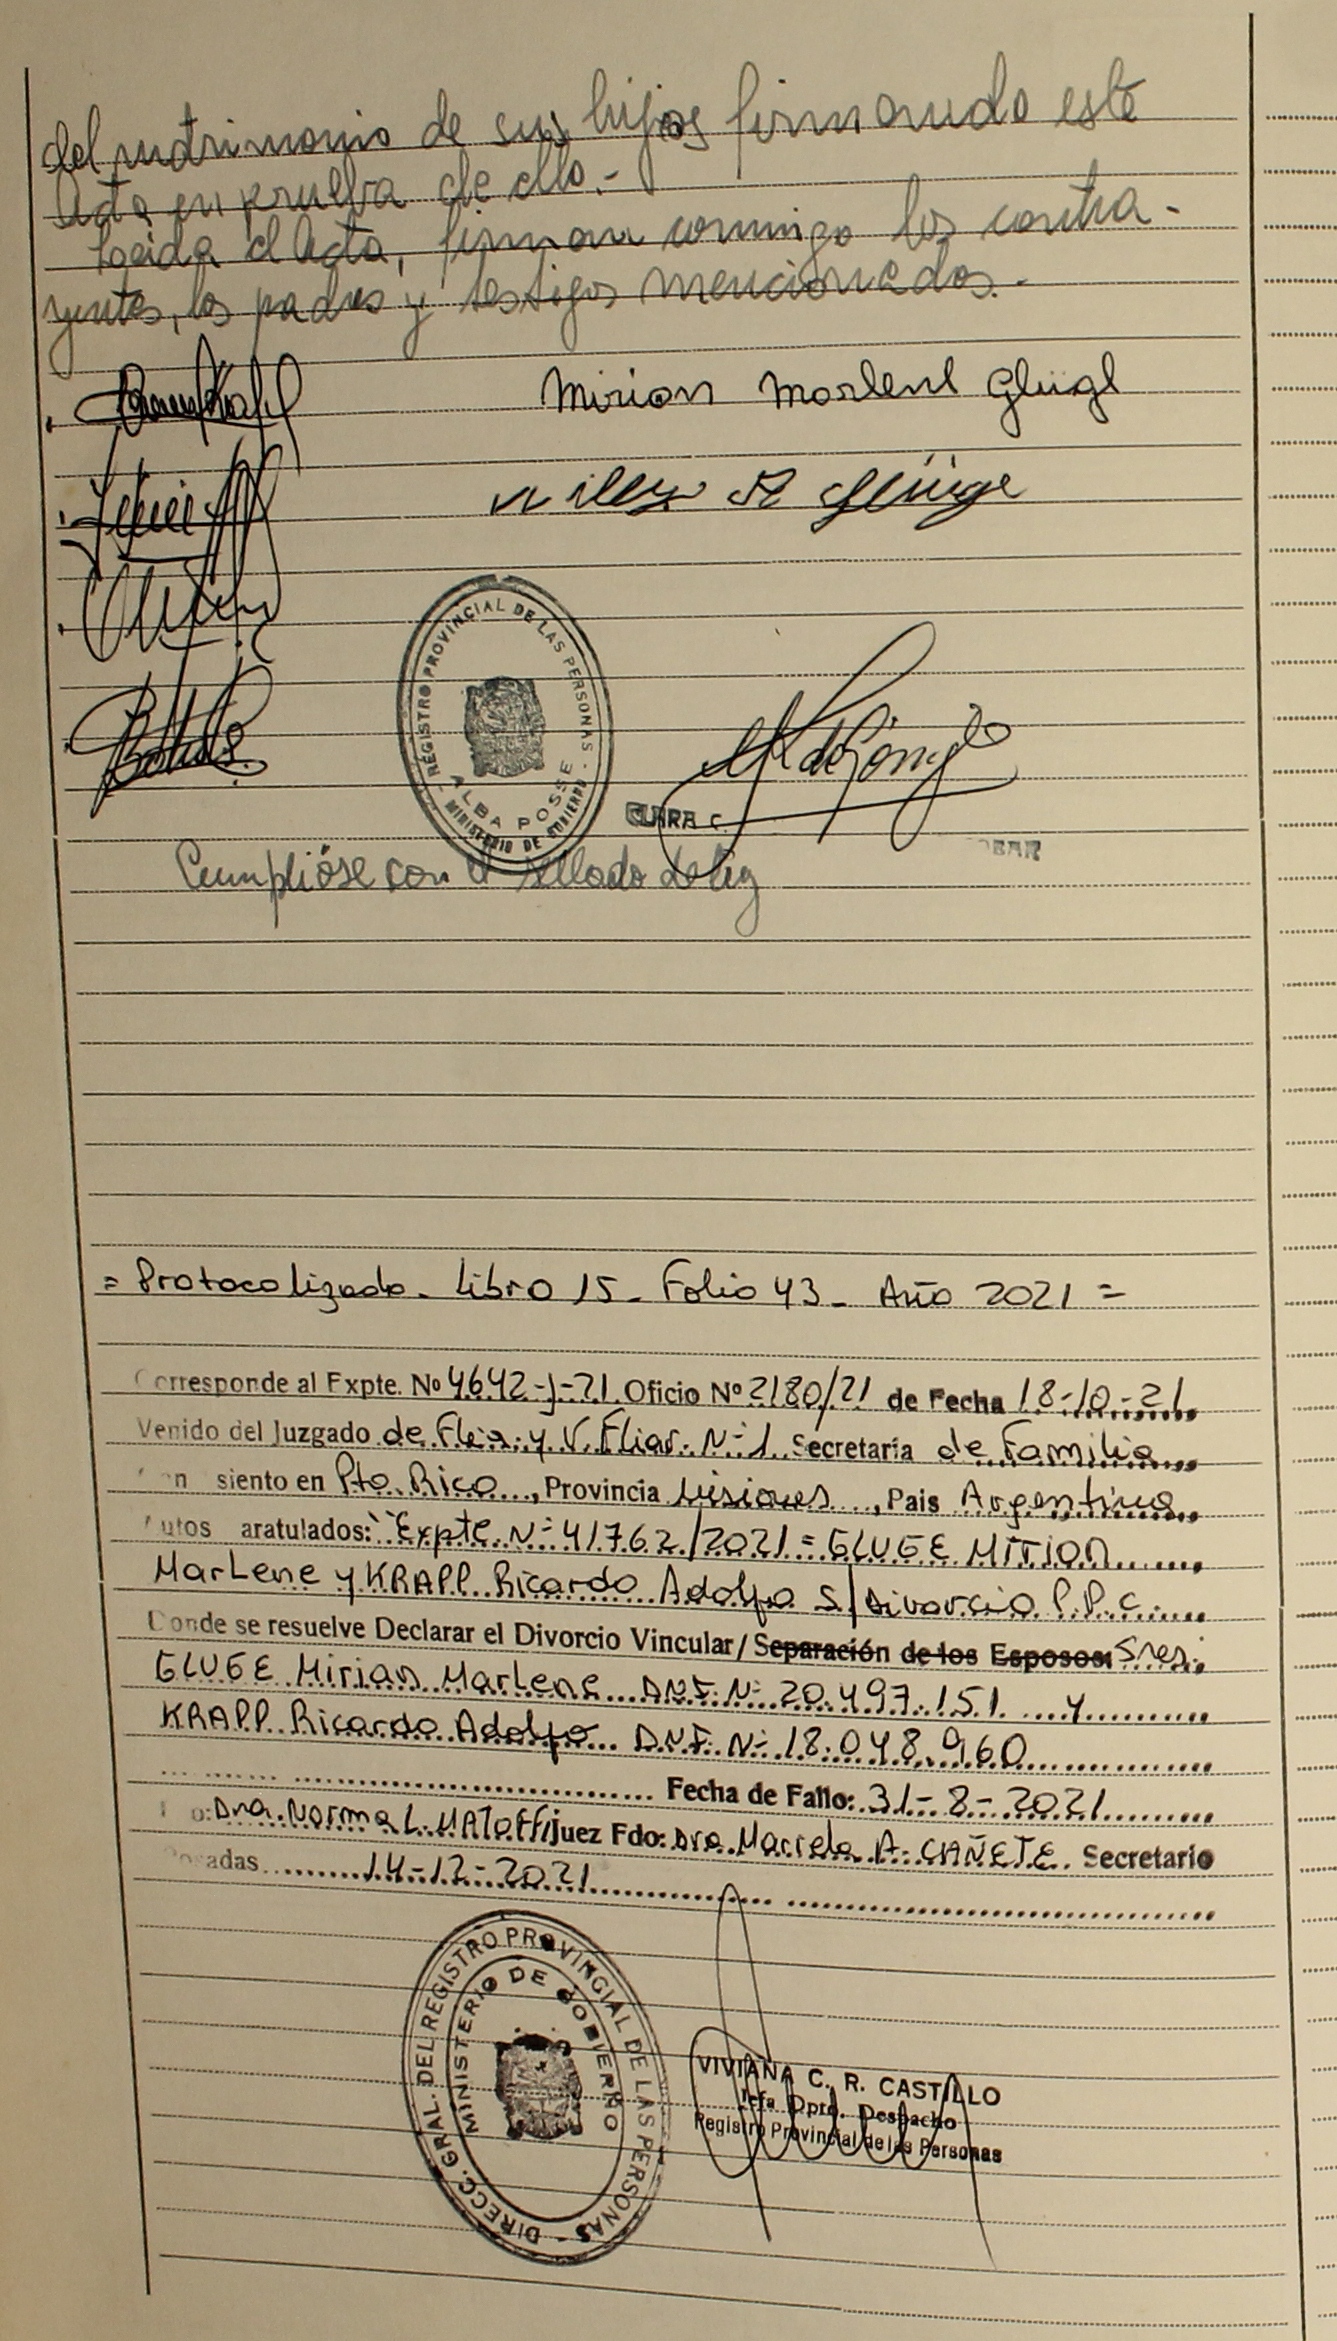 del matrimonio de sus hijos firmando este
Acta en prueba de ello.-
Leida el Acta, firman conmigo los contra-
yentes, los padres y testigos mencionados.-
Mirian Marlene Glüge
Willy R Glüge
REGISTRO PROVINCIAL DE LAS PERSONAS
ALBA POSSE
MINISTERIO DE GOBIERNO
CLARA C.
OBAR
Cumplióse con el sellado de ley
= Protocolizado - Libro 15 - Folio 43 - Año 2021 =
Corresponde al Expte. Nº 4642-J-21 Oficio Nº 2180/21 de Fecha 18-10-21
Venido del Juzgado de Flia. y V. Fliar. Nº 1 Secretaría de Familia
siento en Pto. Rico, Provincia Misiones, Pais Argentina
utos aratulados: "Expte Nº 41762/2021 = GLUGE Mirian
Marlene y KRAPP Ricardo Adolfo S/ Divorcio P.P.C.
Donde se resuelve Declarar el Divorcio Vincular/Separación de los Esposos: Sres.
GLUGE Mirian Marlene D.N.I. Nº 20.497.151. y
KRAPP Ricardo Adolfo D.N.I. Nº 18.048.960
Fecha de Fallo: 31-8-2021
o: Dra. Norma L. Juez Fdo: Dra. Marcela A. CAÑETE. Secretario
Posadas 14-12-2021
DIRECC. GRAL. DEL REGISTRO PROVINCIAL DE LAS PERSONAS
MINISTERIO DE GOBIERNO
VIVIANA C. R. CASTILLO
Jefa Dpto. Despacho
Registro Provincial de las Personas